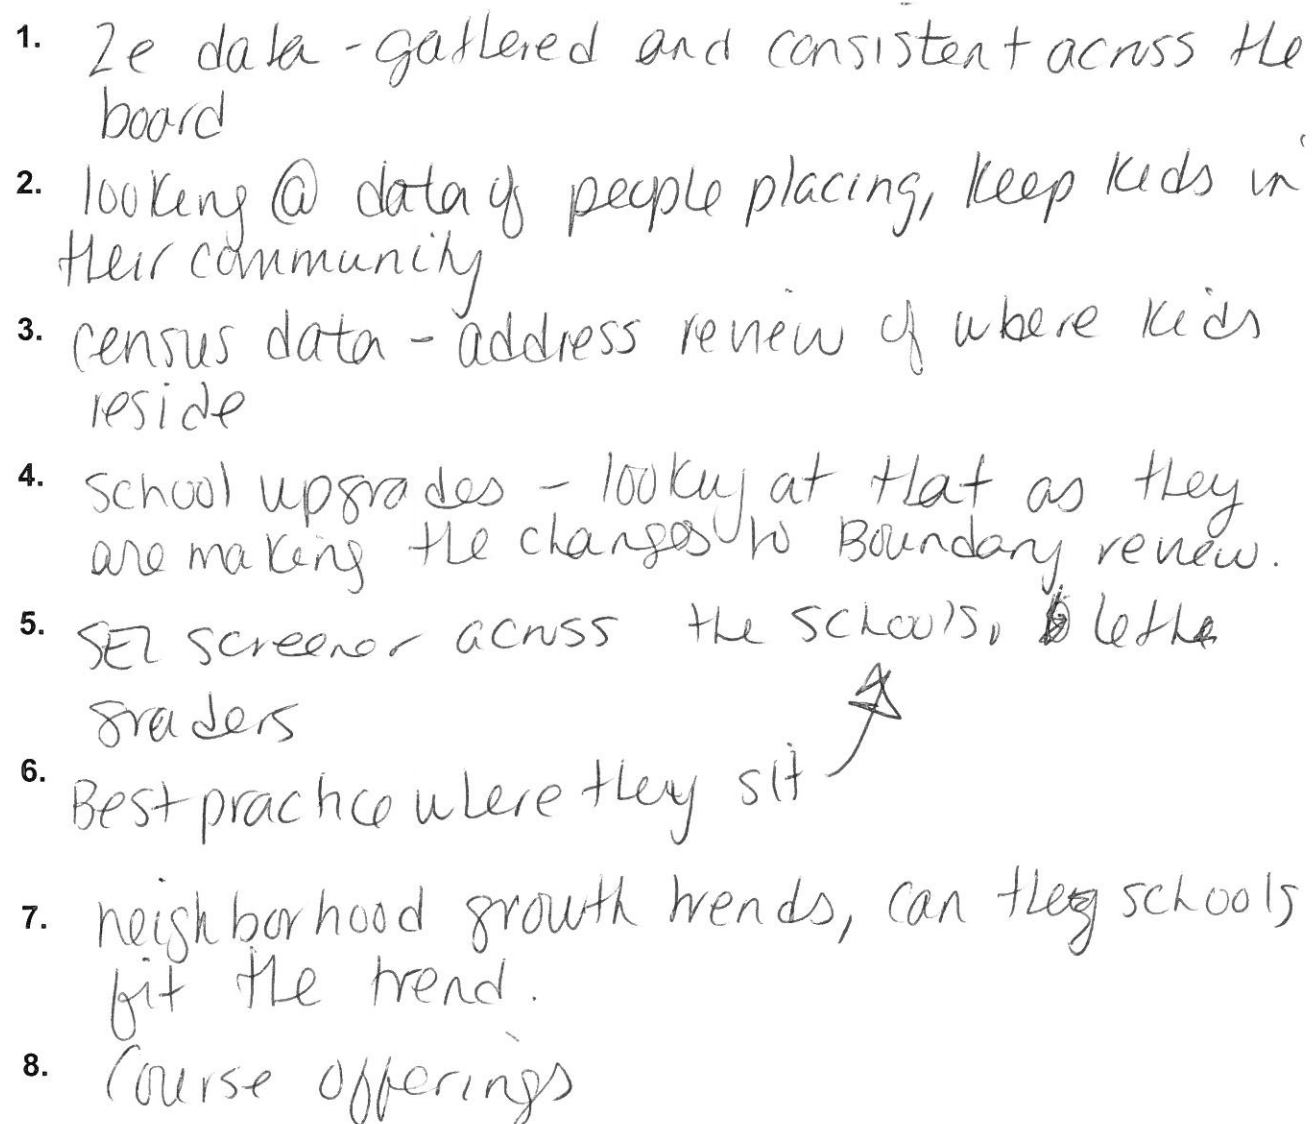 1. 2e data - gathered and consistent across the
board
2. looking @ data of people placing, keep kids in
their community
3. census data - address review of where kids
reside
4. school upgrades - looking at that as they
are making the changes to Boundary review.
5. SEL screener across the schools,
graders
6. Best practice where they sit
7. neighborhood growth trends, can they schools
fit the trend.
8. Course offerings